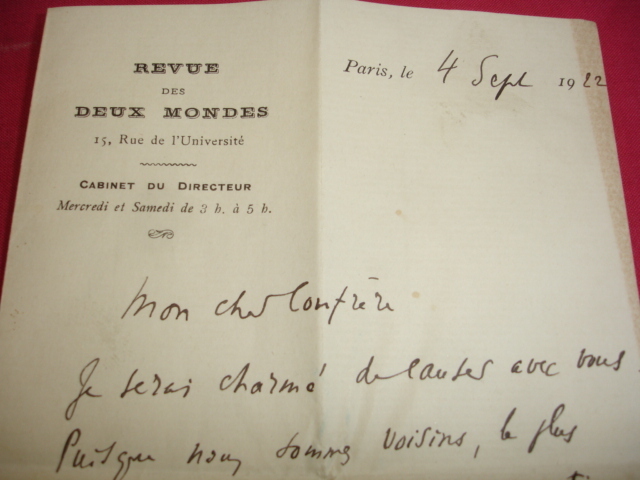 REVUE
DES
DEUX MONDES
15, Rue de l'Université
CABINET DU DIRECTEUR
Mercredi et Samedi de 3 h. à 5 h.
Paris, le 4 Sept 1922
Mon cher Confrère
Je serai charmé de causer avec vous.
Puisque nous sommes voisins, le plus